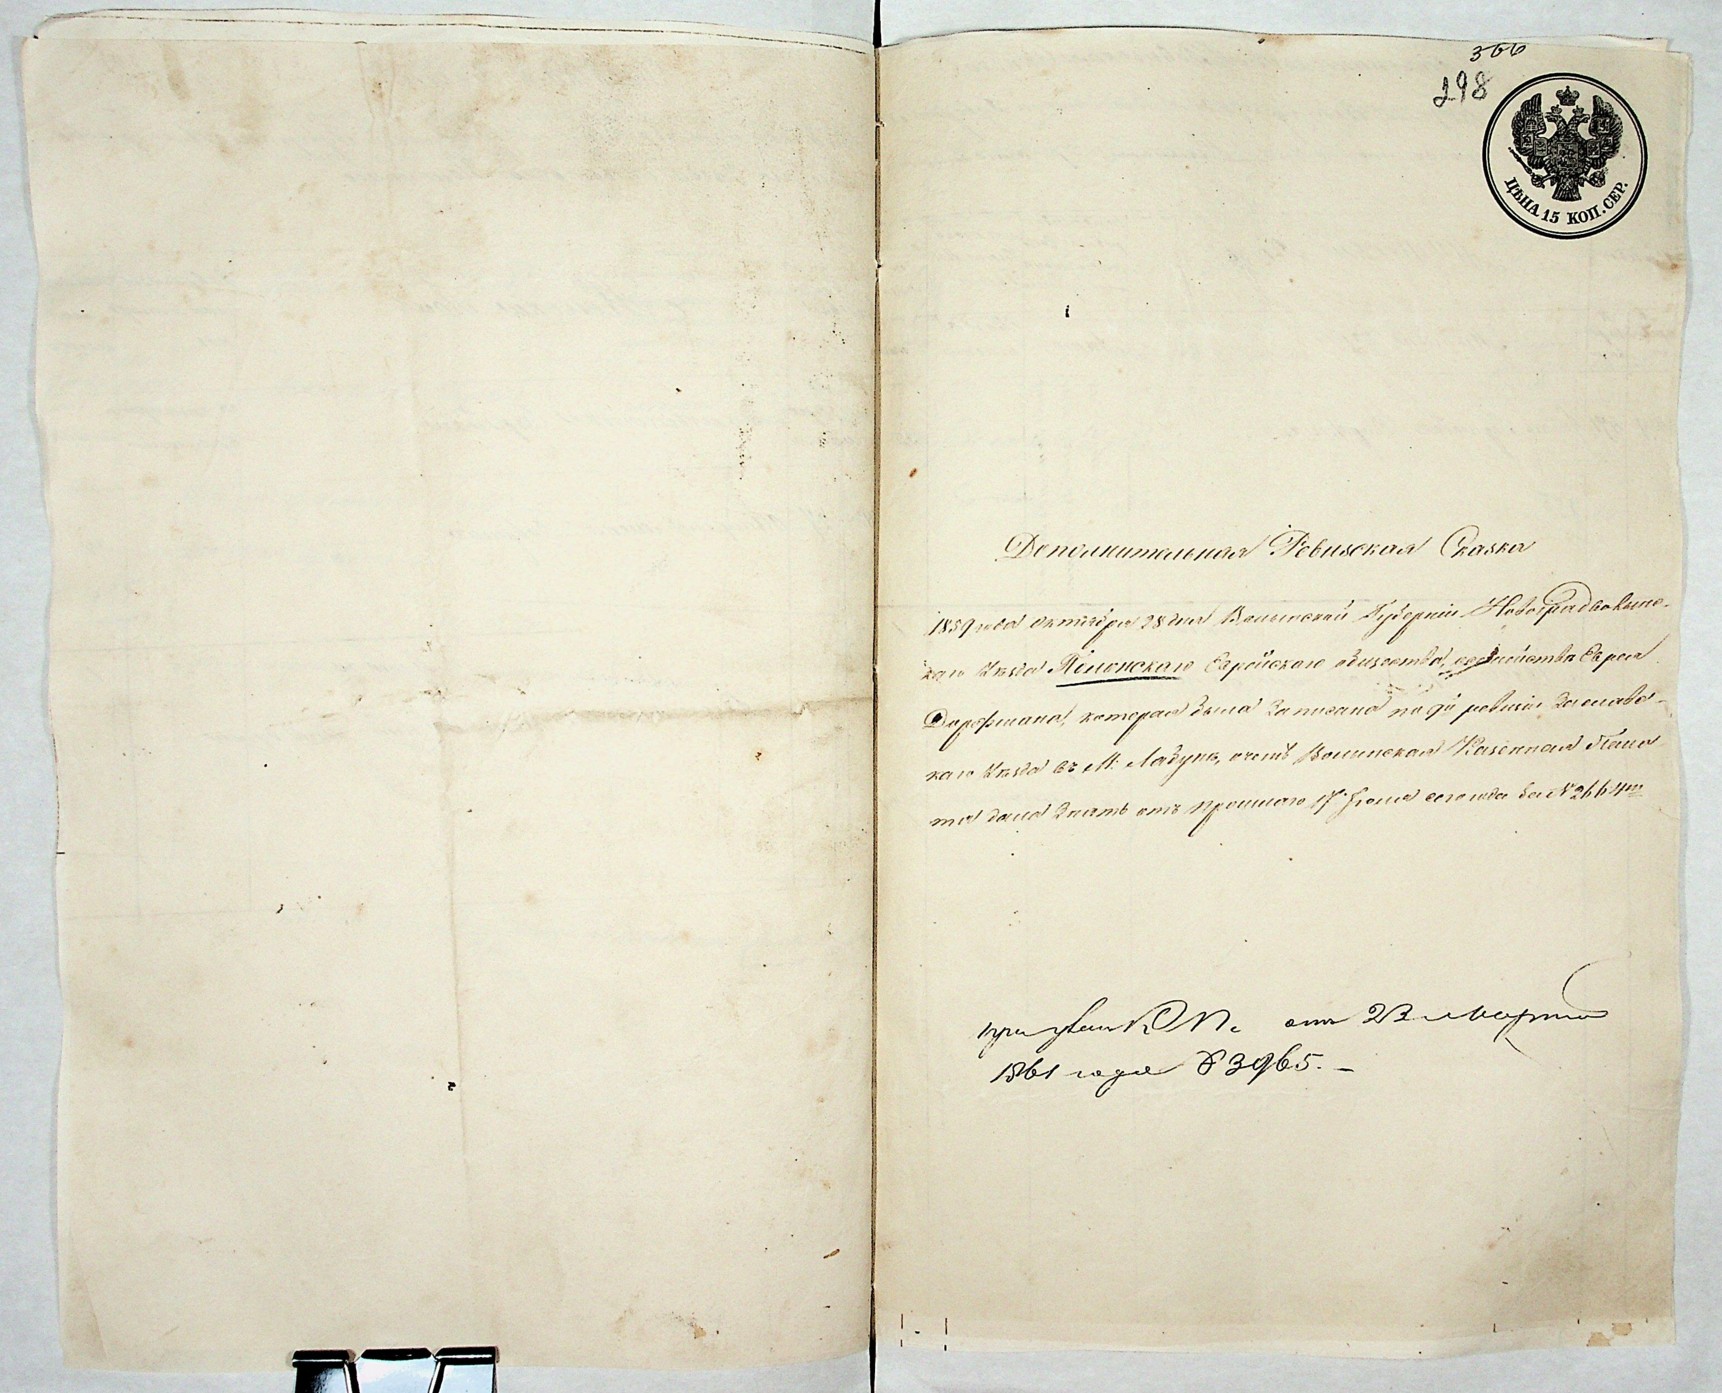 366
298
ЦѢНА 15 КОП. СЕР.
Дополнительная Ревизская Сказка
1859 года октября 28 дня Волынской Губерніи Новоградволынс-
каго Уѣзда Полонскаго Еврейскаго общества, о семействѣ Еврея
Дорфмана, которая была записана по 9й ревизіи Заславс-
каго Уѣзда въ М. Лабунь, о чемъ Волынская Казенная Пала-
та дала знать отъ прошлаго 17 Іюня сего года за №
при указѣ К. П. отъ 23 Марта
1861 года № 3965.